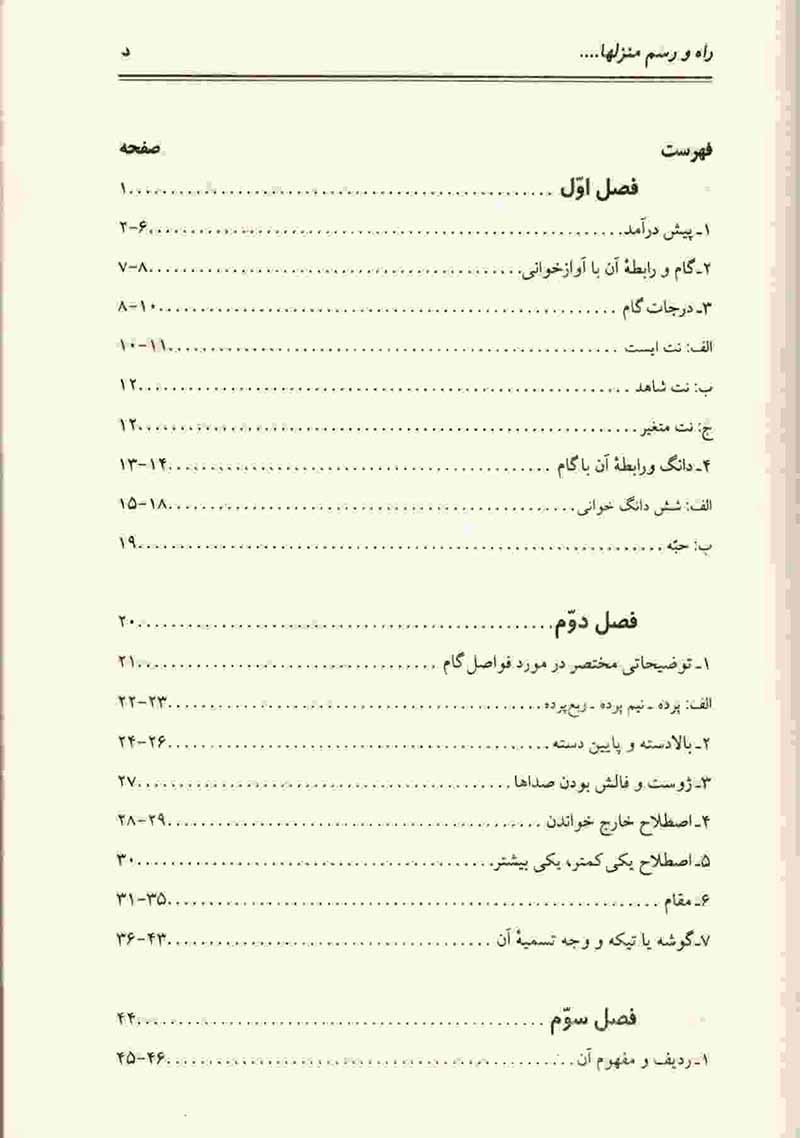 راه و رسم منزلها.... د
فهرست صفحه
فصل اوّل ........ ۱
۱ـ پیش درآمد ........ ۲-۶
۲ـ گام و رابطۀ آن با آوازخوانی ........ ۷-۸
۳ـ درجات گام ........ ۸-۱۰
الف: نت ایست ........ ۱۰-۱۱
ب: نت شاهد ........ ۱۲
ج: نت متغیر ........ ۱۲
۴ـ دانگ ورابطۀ آن با گام ........ ۱۳-۱۴
الف: شش دانگ خوانی ........ ۱۵-۱۸
ب: حبّه ........ ۱۹
فصل دوّم ........ ۲۰
۱ـ توضیحاتی مختصر در مورد فواصل گام ........ ۲۱
الف: پرده ـ نیم پرده ـ ربع‌پرده ........ ۲۲-۲۳
۲ـ بالادسته و پایین دسته ........ ۲۴-۲۶
۳ـ ژوست و فالش بودن صداها ........ ۲۷
۴ـ اصطلاح خارج خواندن ........ ۲۸-۲۹
۵ـ اصطلاح یکی کمتر، یکی بیشتر ........ ۳۰
۶ـ مقام ........ ۳۱-۳۵
۷ـ گوشه یا تیکه و وجه تسمیۀ آن ........ ۳۶-۴۳
فصل سوّم ........ ۴۴
۱ـ ردیف و مفهوم آن ........ ۴۵-۴۶